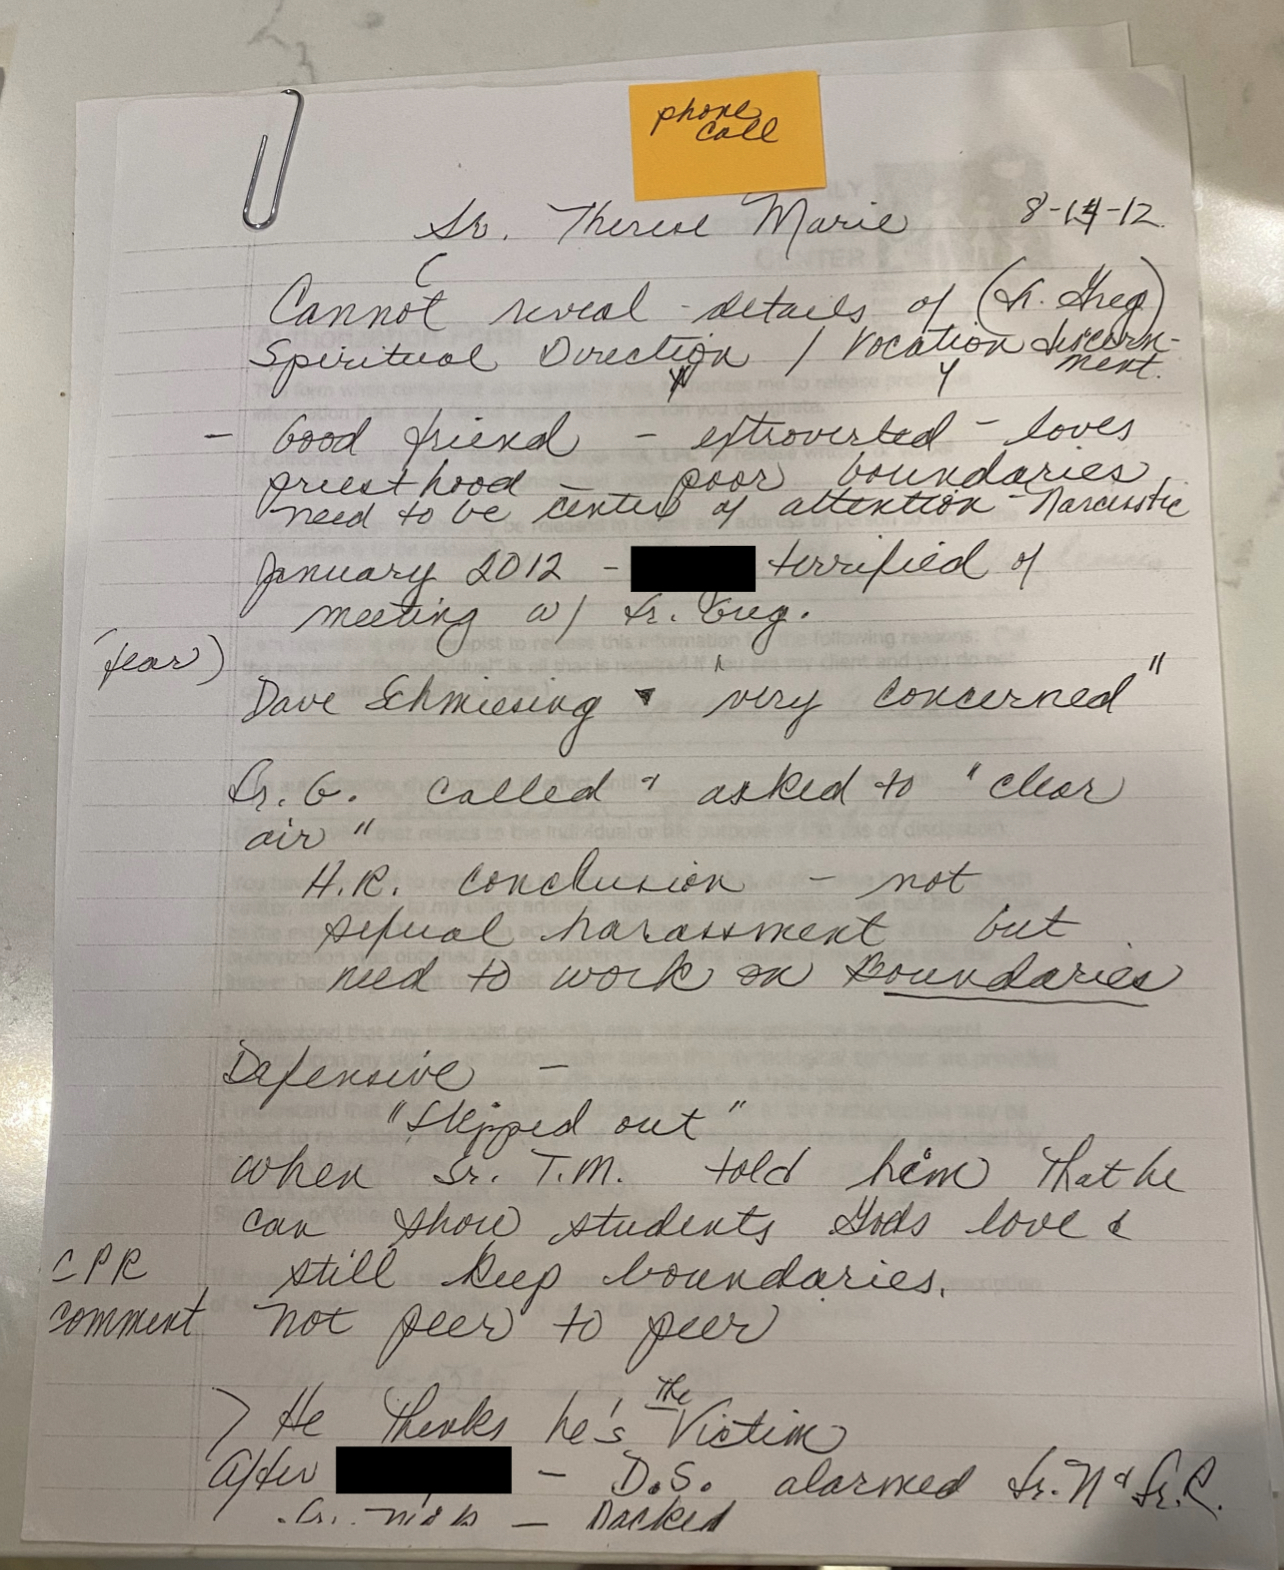 phone
call
Sr. Therese Marie 8-14-12
Cannot reveal details of (Fr. Greg)
Spiritual Direction / Vocation discern-
ment.
- Good friend - extroverted - loves
priesthood - poor boundaries
need to be center of attention - Narcisstic
January 2012 - terrified of
meeting w/ Fr. Greg.
(fear)
Dave Schmiesing "very concerned"
Fr. G. called & asked to "clear
air"
H.R. conclusion - not
sexual harassment but
need to work on Boundaries
Defensive -
"Skipped out"
when Sr. T.M. told him that he
can show students Gods love &
still keep boundaries.
CPR
comment
not peer to peer
> He thinks he's the Victim
After - D.S. alarmed Fr. N & Fr. R.
Fr. - Backed